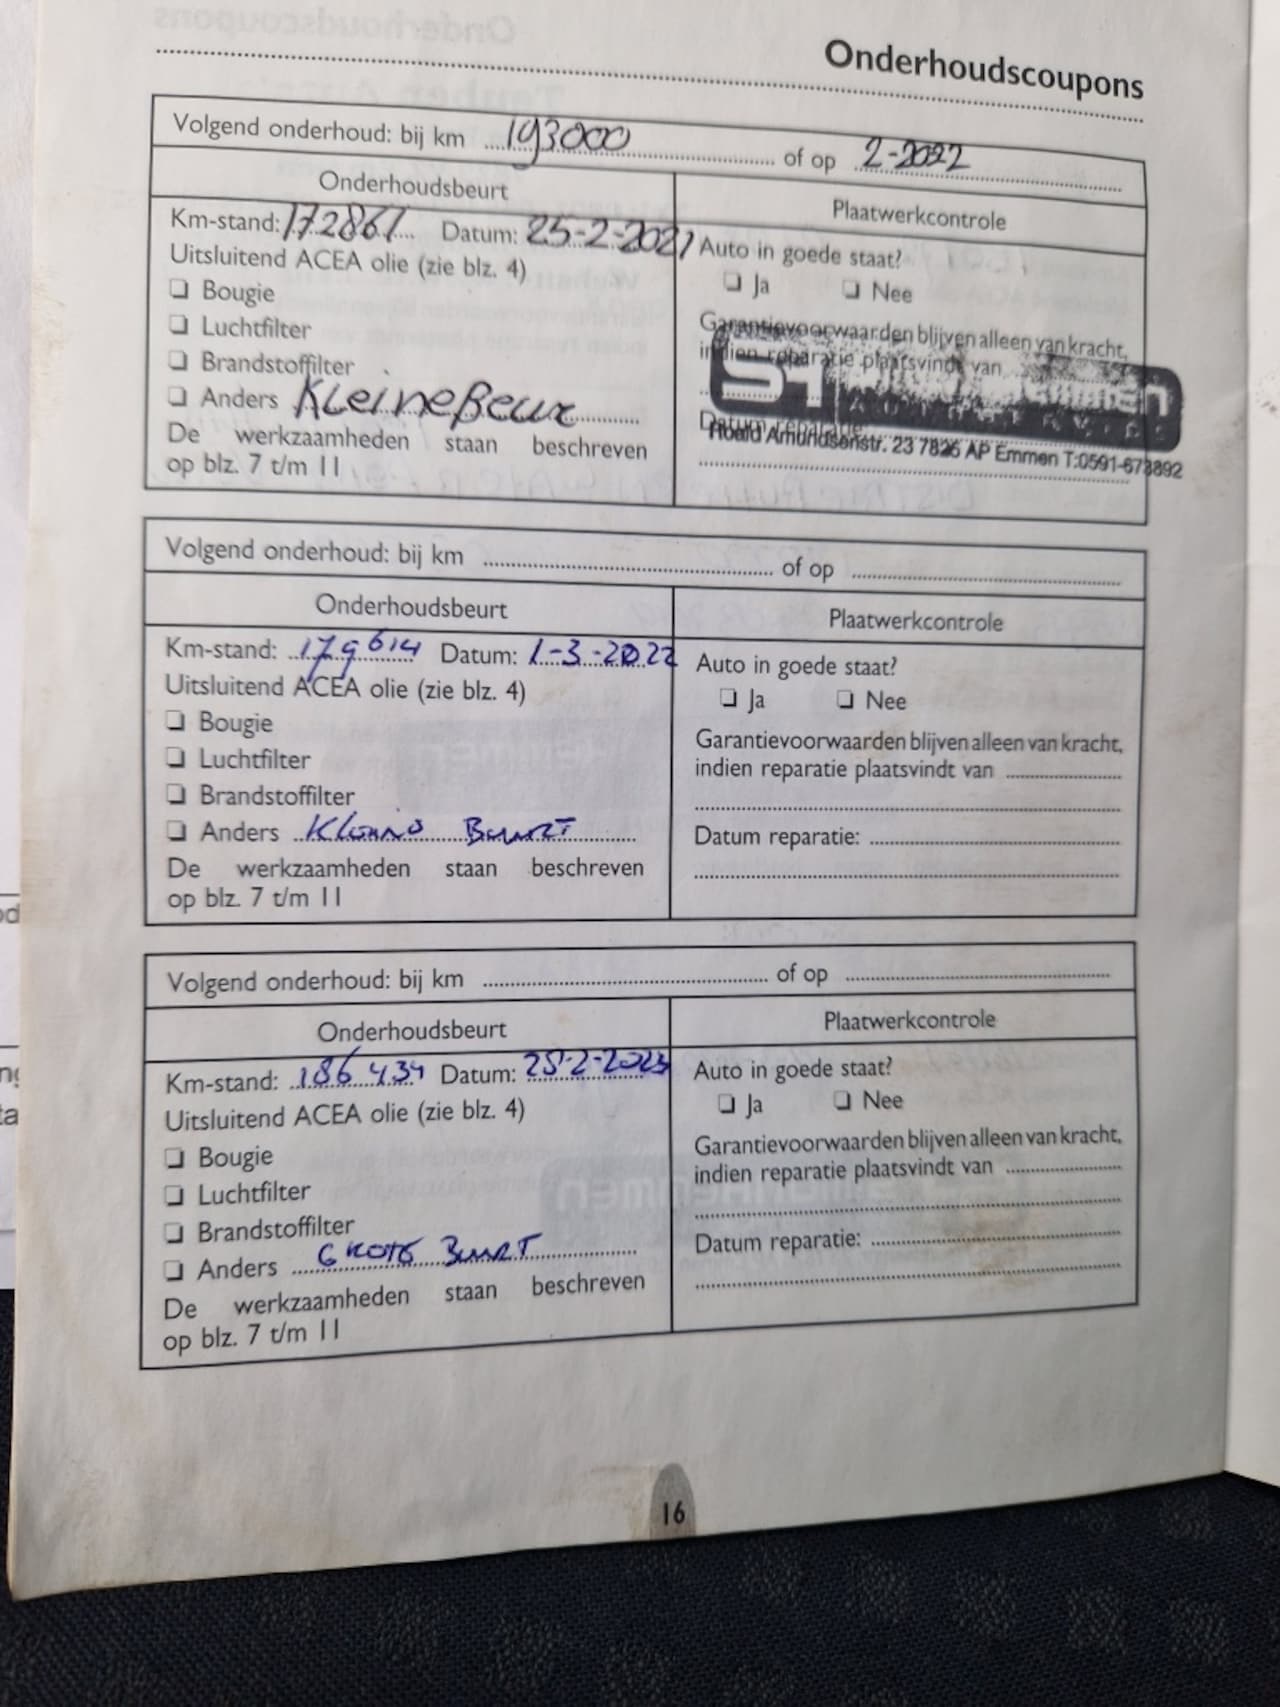 Onderhoudscoupons
Volgend onderhoud: bij km 193000 of op 2-2022
Onderhoudsbeurt
Plaatwerkcontrole
Km-stand: 172861 Datum: 25-2-2021
Uitsluitend ACEA olie (zie blz. 4)
❏ Bougie
❏ Luchtfilter
❏ Brandstoffilter
❏ Anders Kleine Beur
De werkzaamheden staan beschreven
op blz. 7 t/m 11
Auto in goede staat?
❏ Ja ❏ Nee
Garantievoorwaarden blijven alleen van kracht,
indien reparatie plaatsvindt van
Datum reparatie:
Roald Amundsenstr. 23 7826 AP Emmen T:0591-673892
Volgend onderhoud: bij km of op
Onderhoudsbeurt
Plaatwerkcontrole
Km-stand: 179614 Datum: 1-3-2022
Uitsluitend ACEA olie (zie blz. 4)
❏ Bougie
❏ Luchtfilter
❏ Brandstoffilter
❏ Anders Kleine Beurt
De werkzaamheden staan beschreven
op blz. 7 t/m 11
Auto in goede staat?
❏ Ja ❏ Nee
Garantievoorwaarden blijven alleen van kracht,
indien reparatie plaatsvindt van
Datum reparatie:
Volgend onderhoud: bij km of op
Onderhoudsbeurt
Plaatwerkcontrole
Km-stand: 186434 Datum: 25-2-2023
Uitsluitend ACEA olie (zie blz. 4)
❏ Bougie
❏ Luchtfilter
❏ Brandstoffilter
❏ Anders Grote Beurt
De werkzaamheden staan beschreven
op blz. 7 t/m 11
Auto in goede staat?
❏ Ja ❏ Nee
Garantievoorwaarden blijven alleen van kracht,
indien reparatie plaatsvindt van
Datum reparatie:
16